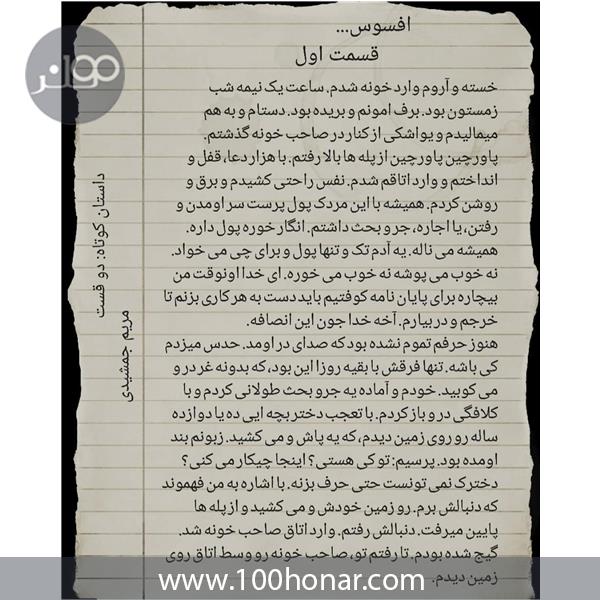 افسوس...
قسمت اول
خسته و آروم وارد خونه شدم. ساعت یک نیمه شب
زمستون بود. برف امونم و بریده بود. دستام و به هم
میمالیدم و یواشکی از کنار در صاحب خونه گذشتم.
پاورچین پاورچین از پله ها بالا رفتم. با هزار دعا، قفل و
انداختم و وارد اتاقم شدم. نفس راحتی کشیدم و برق و
روشن کردم. همیشه با این مردک پول پرست سر اومدن و
رفتن، یا اجاره، جر و بحث داشتم. انگار خوره پول داره.
همیشه می ناله. یه آدم تک و تنها پول و برای چی می خواد.
نه خوب می پوشه نه خوب می خوره. ای خدا اونوقت من
بیچاره برای پایان نامه کوفتیم باید دست به هر کاری بزنم تا
خرجم و در بیارم. آخه خدا جون این انصافه.
هنوز حرفم تموم نشده بود که صدای در اومد. حدس میزدم
کی باشه. تنها فرقش با بقیه روزا این بود، که بدونه غر در و
می کوبید. خودم و آماده یه جر و بحث طولانی کردم و با
کلافگی در و باز کردم. با تعجب دختر بچه ایی ده یا دوازده
ساله رو روی زمین دیدم، که یه پاش و می کشید. زبونم بند
اومده بود. پرسیم: تو کی هستی؟ اینجا چیکار می کنی؟
دخترک نمی تونست حتی حرف بزنه. با اشاره به من فهموند
که دنبالش برم. رو زمین خودش و می کشید و از پله ها
پایین میرفت. دنبالش رفتم. وارد اتاق صاحب خونه شد.
گیج شده بودم. تا رفتم تو، صاحب خونه رو وسط اتاق روی
زمین دیدم.
داستان کوتاه: دو قست
مریم جمشیدی
www.100honar.com